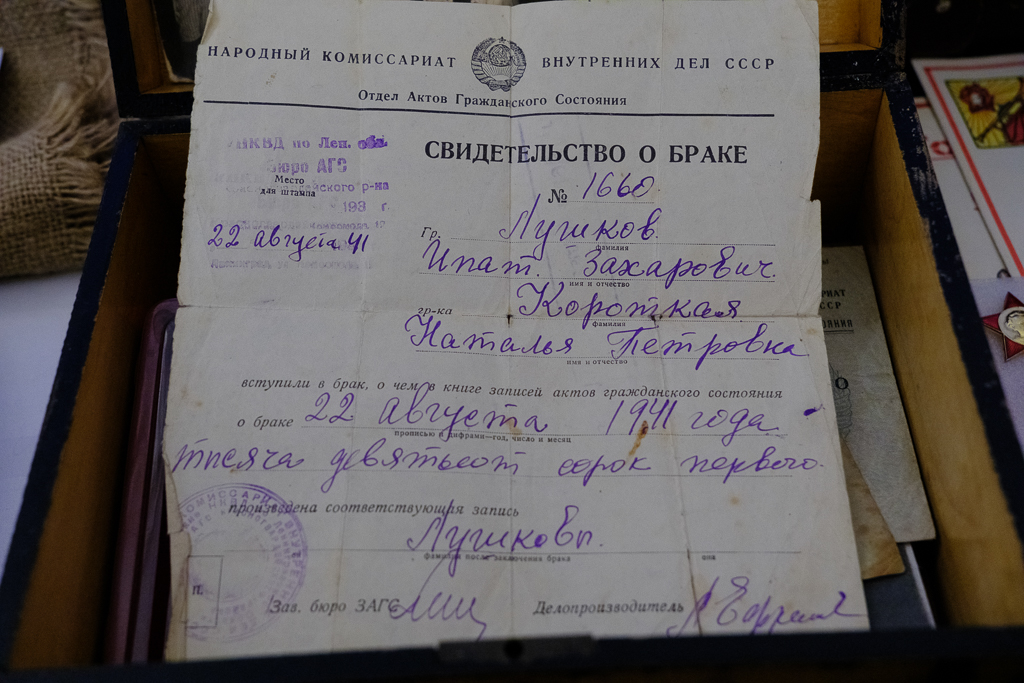 НАРОДНЫЙ КОМИССАРИАТ ВНУТРЕННИХ ДЕЛ СССР
Отдел Актов Гражданского Состояния
НКВД по Лен. обл.
Бюро АГС
Место
для штампа
р-на
193 г.
22 августа 41
СВИДЕТЕЛЬСТВО О БРАКЕ
№ 1660
Гр. Лушков.
фамилия
Ипат. Захарович.
имя и отчество
гр-ка Короткая
фамилия
Наталья Петровна
имя и отчество
вступили в брак, о чем в книге записей актов гражданского состояния
о браке 22 августа 1941 года
прописью и цифрами—год, число и месяц
тысяча девятьсот сорок первого.
произведена соответствующая запись
Лушковы.
фамилия после заключения брака она
П.
Зав. бюро ЗАГС
Делопроизводитель